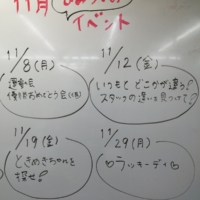 11月
イベント
11/8(月)
運動会
優勝おめでとう会
11/12(金)
いつもとどこかが違う!
スタッフの違いを見つけて!
11/19(金)
ときめきおやつを
探せ!
11/29(月)
♡ラッキーデイ♡